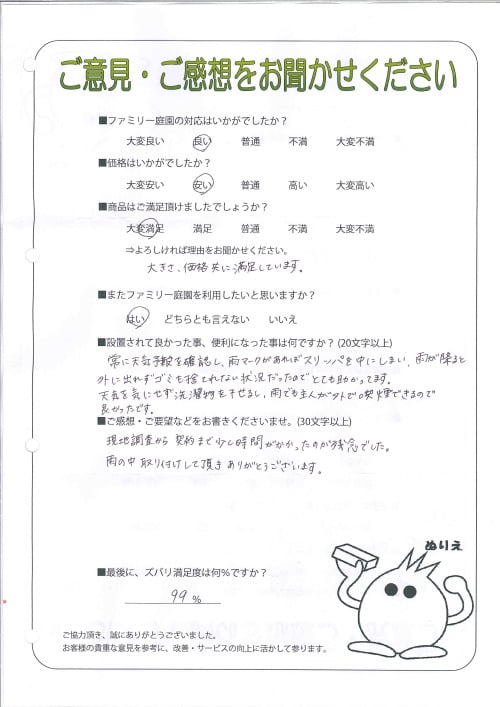 ご意見・ご感想をお聞かせください
■ファミリー庭園の対応はいかがでしたか？
大変良い 良い 普通 不満 大変不満
■価格はいかがでしたか？
大変安い 安い 普通 高い 大変高い
■商品はご満足頂けましたでしょうか？
大変満足 満足 普通 不満 大変不満
⇒よろしければ理由をお聞かせください。
大きさ、価格共に満足しています。
■またファミリー庭園を利用したいと思いますか？
はい どちらとも言えない いいえ
■設置されて良かった事、便利になった事は何ですか？(20文字以上)
常に天気予報を確認し、雨マークがあればスリッパを中にしまい、雨が降ると
外に出れずゴミを捨てれない状況だったのでとても助かってます。
天気を気にせず洗濯物を干せるし、雨でも主人が外で喫煙できるので
良かったです。
■ご感想・ご要望などをお書きくださいませ。(30文字以上)
現地調査から契約まで少し時間がかかったのが残念でした。
雨の中取り付けして頂きありがとうございます。
ぬりえ
■最後に、ズバリ満足度は何％ですか？
99％
ご協力頂き、誠にありがとうございました。
お客様の貴重な意見を参考に、改善・サービスの向上に活かして参ります。